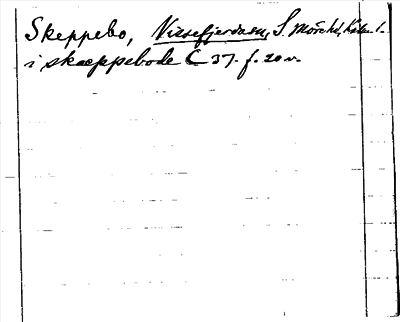 Skeppebo, Vissefjerdasn, S. Möreshd, Kalm l.
i skæppebode C 37. f. 20 v.